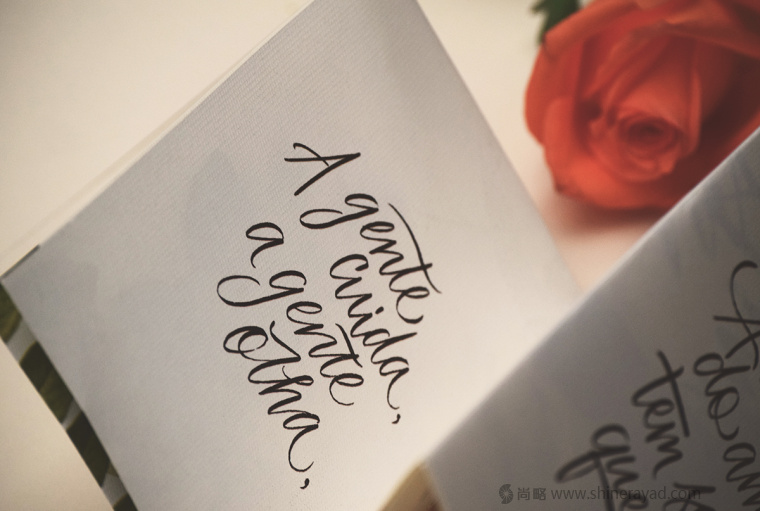 A gente
cuida,
a gente
olha,
A
do am
tem
que
尚略 www.shinerayad.com